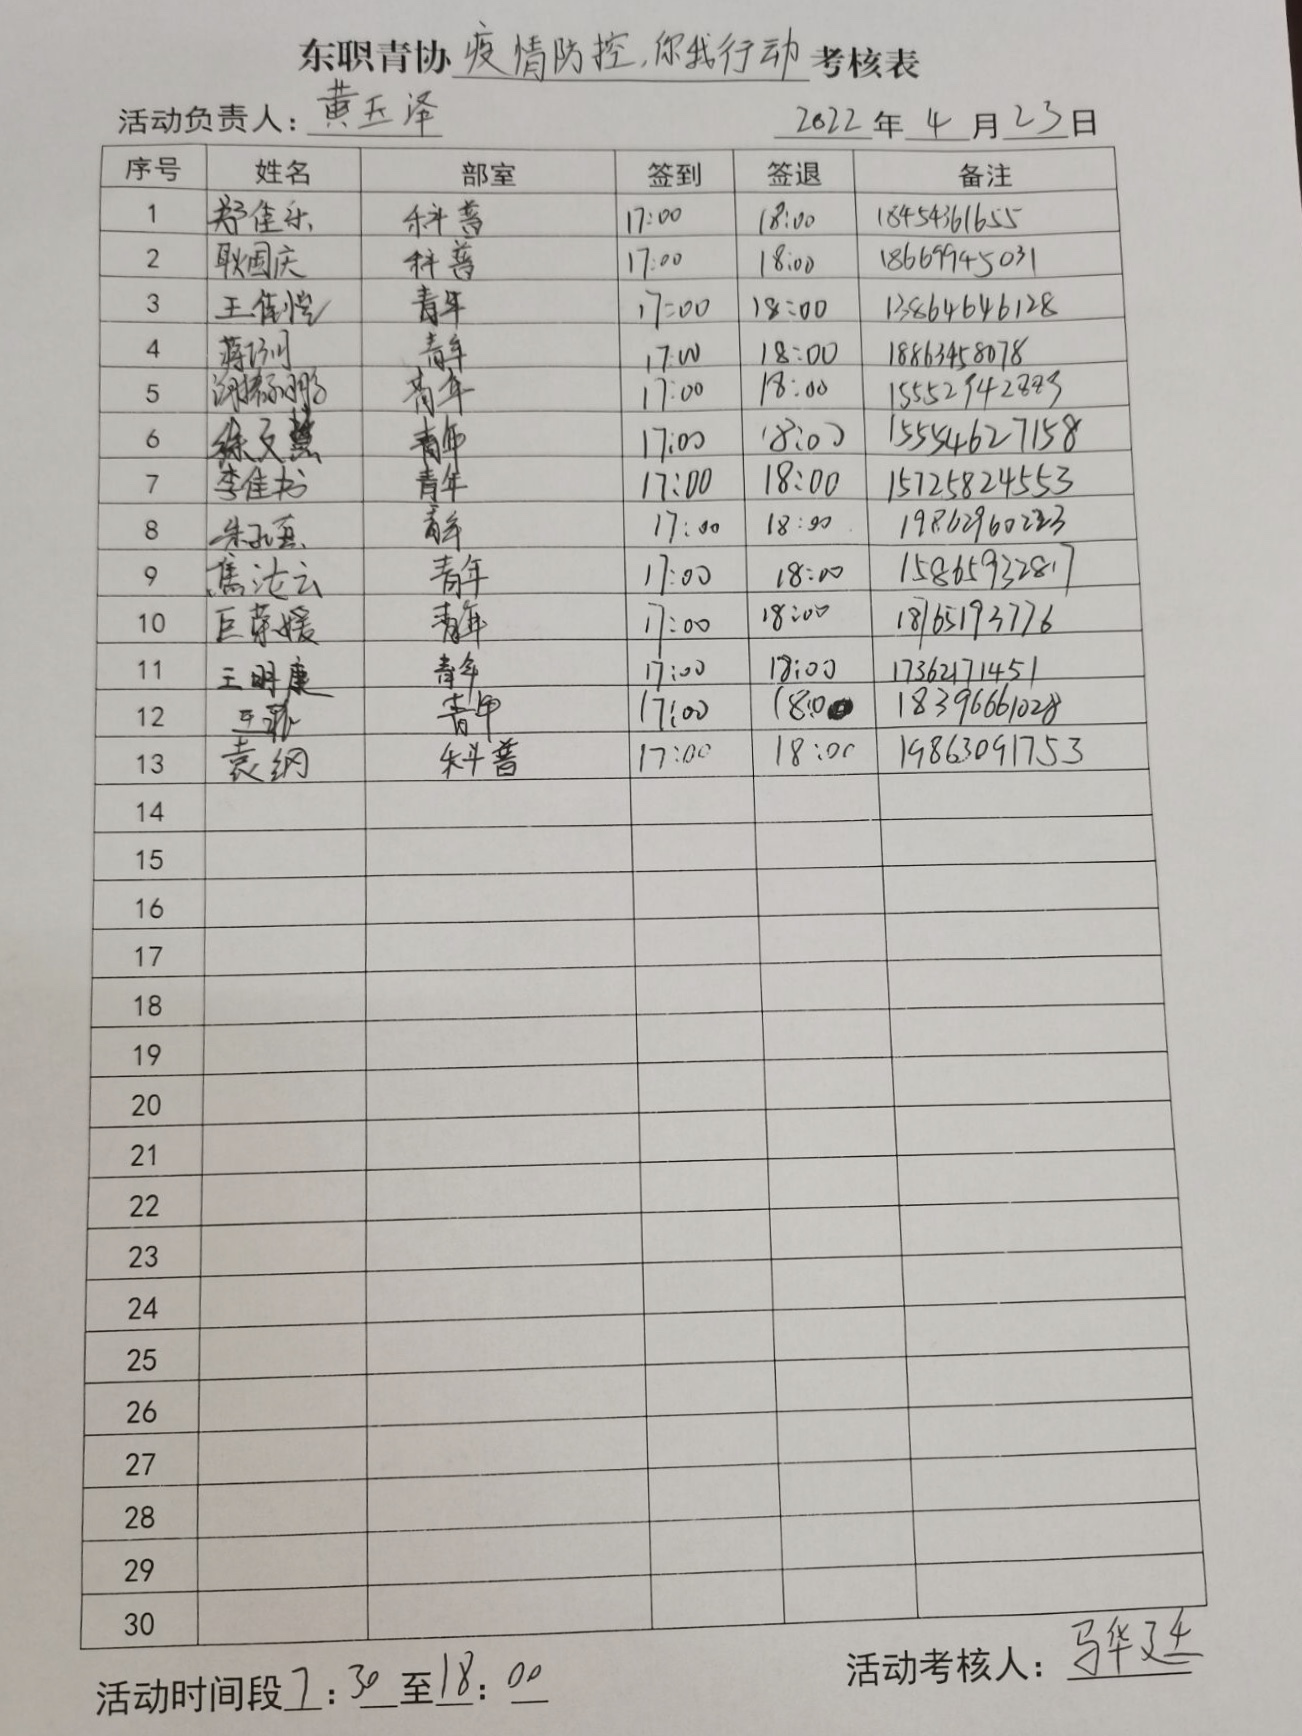 东职青协 疫情防控,你我行动 考核表
活动负责人: 黄玉泽 2022年4月23日
序号 姓名 部室 签到 签退 备注
1 郑佳乐 科普 17:00 18:00 18454361655
2 耿国庆 科普 17:00 18:00 18669945031
3 王佳恺 青年 17:00 18:00 13864646128
4 蒋 青年 17:00 18:00 18863458078
5 青年 17:00 18:00 15552942883
6 徐文慧 青年 17:00 18:00 15554627158
7 李佳书 青年 17:00 18:00 15725824553
8 朱 青年 17:00 18:00
9 青年 17:00 18:00 15865932817
10 巨荣媛 青年 17:00 18:00 18765193776
11 王明康 青年 17:00 18:00 17362171451
12 王 青年 17:00 18:00 18396661028
13 袁纲 科普 17:00 18:00 19863091753
14
15
16
17
18
19
20
21
22
23
24
25
26
27
28
29
30
活动时间段 7:30至18:00 活动考核人: 马华廷